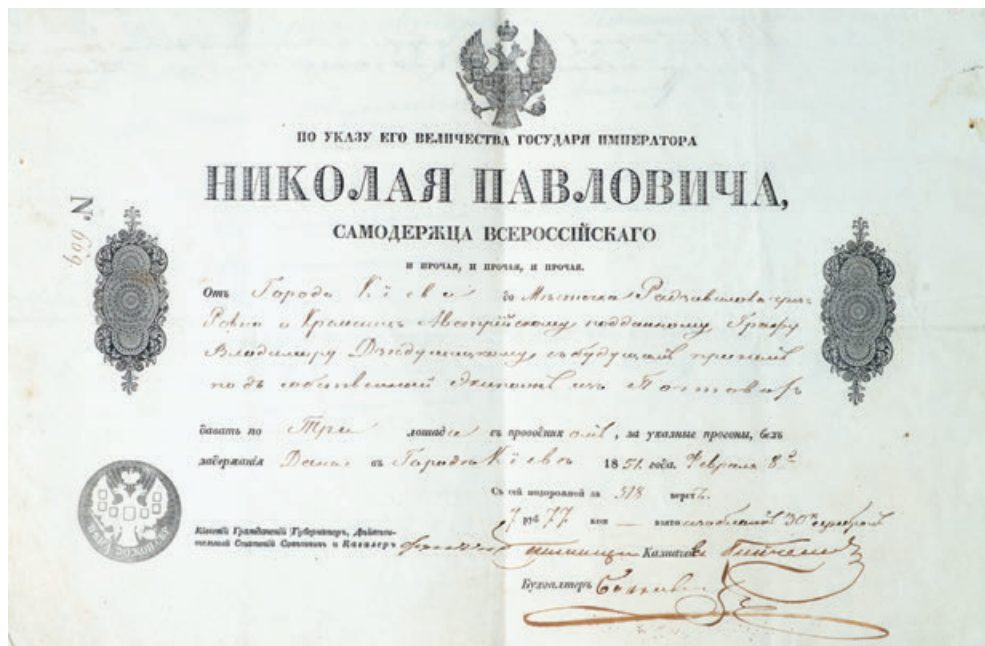 ПО УКАЗУ ЕГО ВЕЛИЧЕСТВА ГОСУДАРЯ ИМПЕРАТОРА
НИКОЛАЯ ПАВЛОВИЧА,
САМОДЕРЖЦА ВСЕРОССІЙСКАГО
И ПРОЧАЯ, И ПРОЧАЯ, И ПРОЧАЯ.
№ 609.
Отъ Города Кіева до Мѣстечка Радзивилова чрезъ
Ровно и Кременецъ Австрійскому подданному Графу
Владимиру Дзѣдушицкому съ будущимъ при немъ
подъ собственный Экипажъ изъ Почтовыхъ
давать по Три лошади съ проводникомъ, за указные прогоны, безъ
задержанія. Дана въ Городѣ Кіевѣ 1851 года. Февраля 8
Съ сей подорожной за 518 верстъ.
7 руб 77 коп — взято серебромъ
Кіевскій Гражданскій Губернаторъ, Дѣйстви-
тельный Статскій Совѣтникъ и Кавалеръ
Казначей
Бухгалтеръ